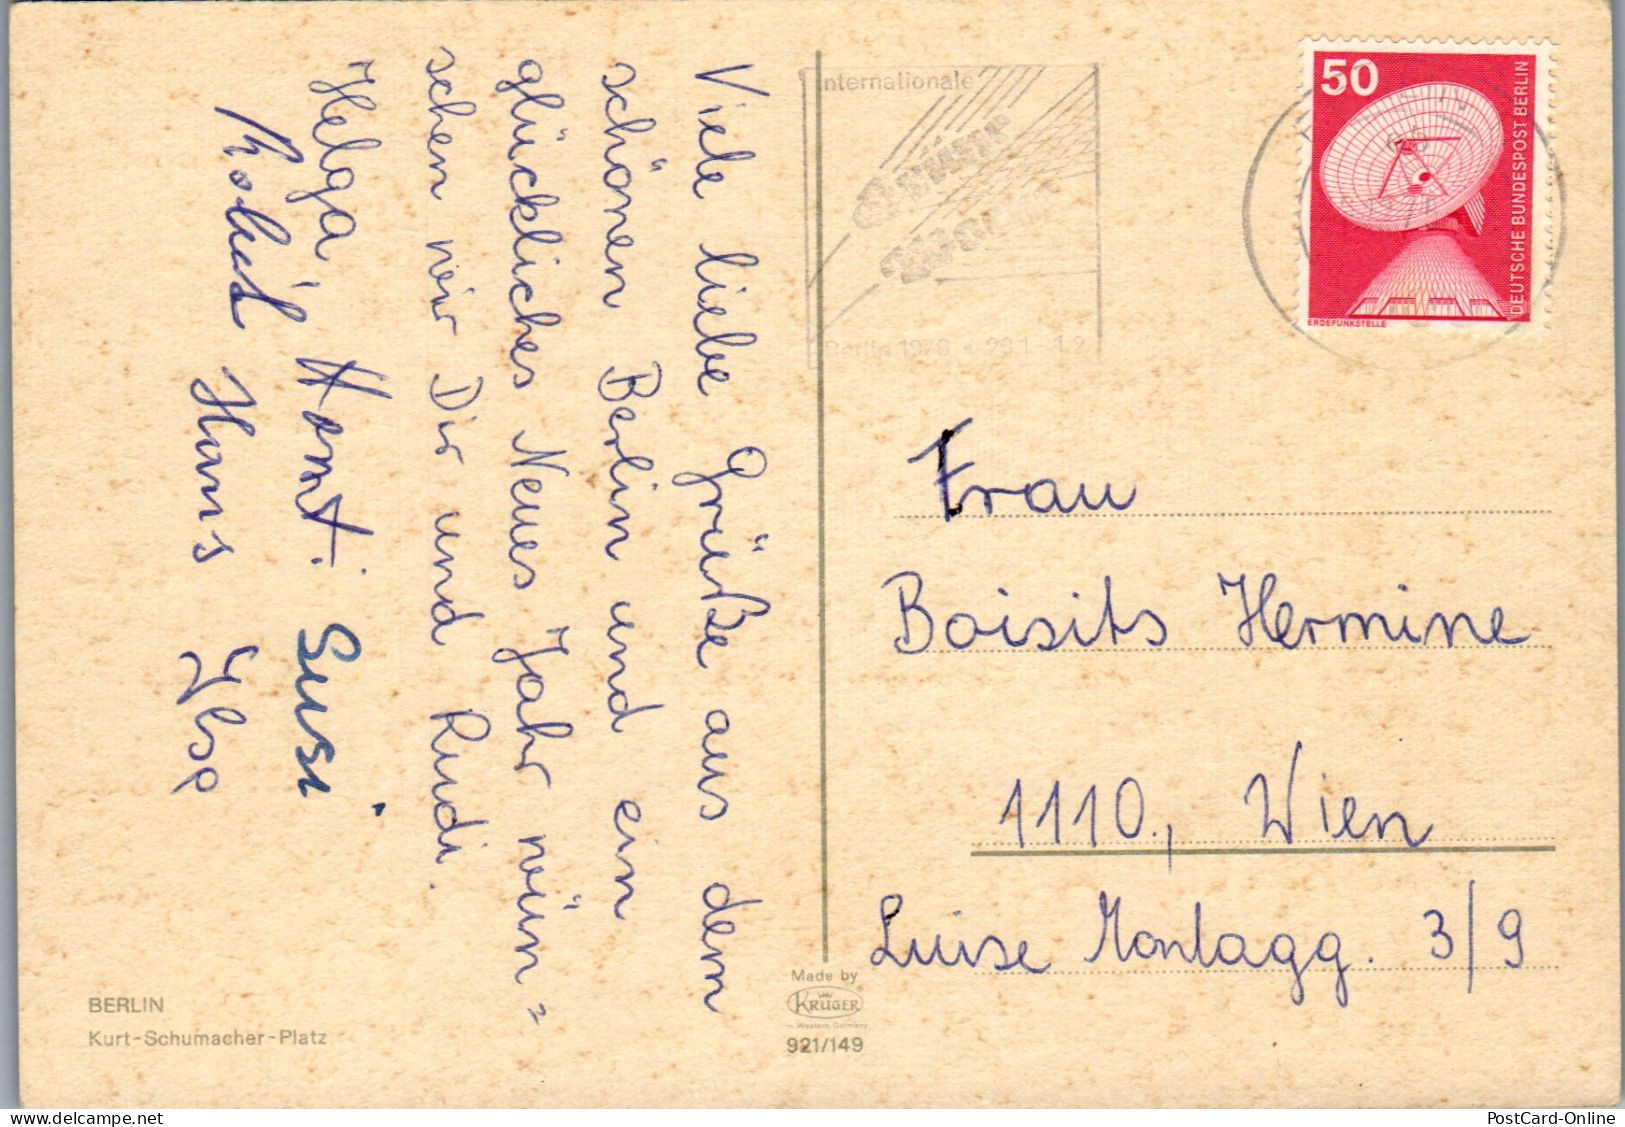 Viele liebe Grüße aus dem
schönen Berlin und ein
glückliches Neues Jahr wün=
schen wir Dir und Rudi.
Helga, Susi
Hans Ilse
Internationale
Grüne
Woche
Berlin 1976
50
DEUTSCHE BUNDESPOST BERLIN
ERDEFUNKSTELLE
Frau
Boisits Hermine
1110, Wien
Luise Montagg. 3/9
BERLIN
Kurt-Schumacher-Platz
Made by
KRÜGER
in Western Germany
921/149
delcampe.net
PostCard-Online